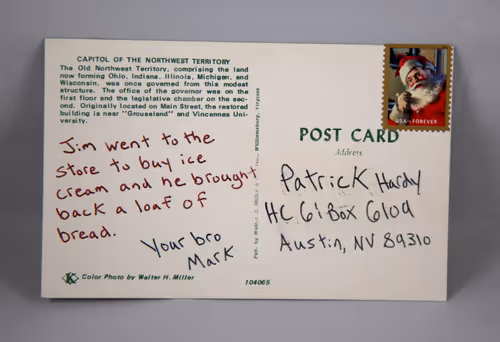 CAPITOL OF THE NORTHWEST TERRITORY
The Old Northwest Territory, comprising the land
now forming Ohio, Indiana, Illinois, Michigan, and
Wisconsin, was once governed from this modest
structure. The office of the governor was on the
first floor and the legislative chamber on the sec-
ond. Originally located on Main Street, the restored
building is near "Grouseland" and Vincennes Uni-
versity.
Jim went to the
store to buy ice
cream and he brought
back a loaf of
bread.
Your bro
Mark
K Color Photo by Walter H. Miller
Pub. by Walter Williamsburg, Virginia
104065
USA FOREVER
POST CARD
Address
Patrick Hardy
HC 61 Box 6109
Austin, NV 89310